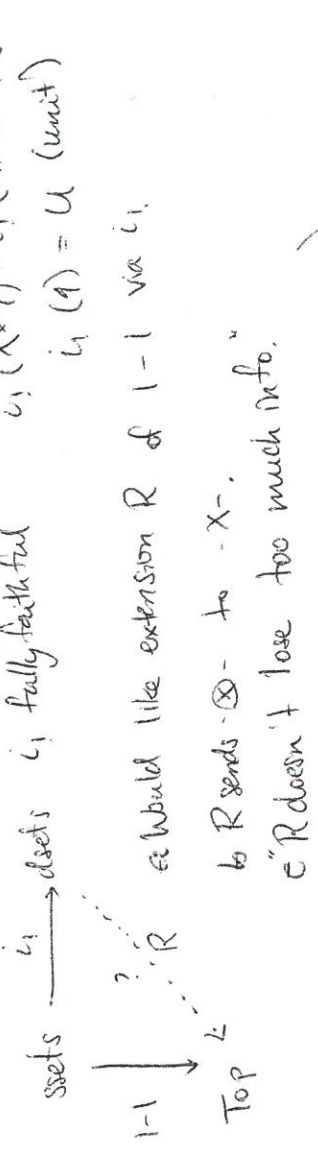 ssets i! dsets i! fully faithful
i! (1) = U (unit)
|-| ? R
Top
a: Would like extension R of |-| via i!.
b R sends -⊗- to -×-.
c "R doesn't lose too much info."